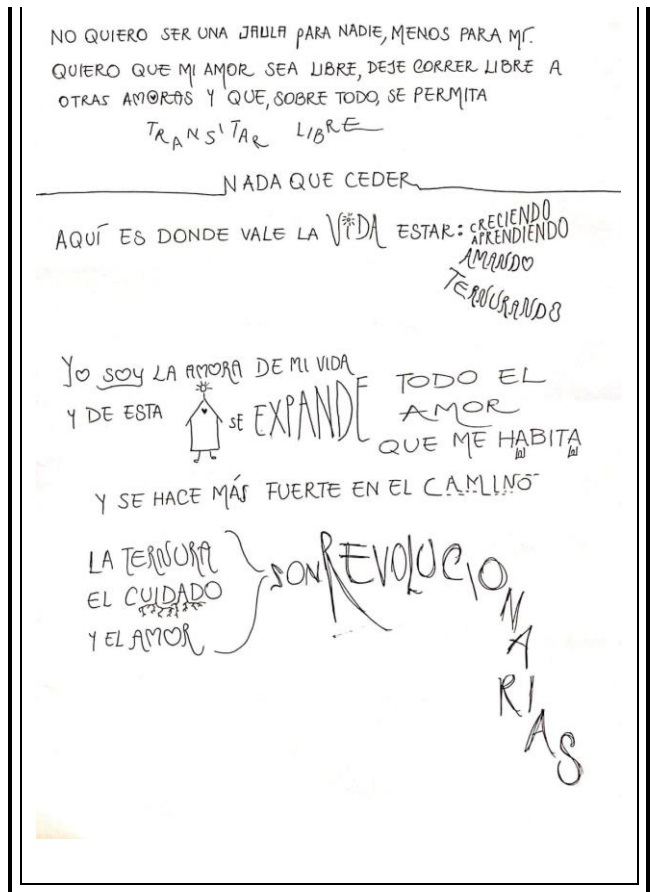 NO QUIERO SER UNA JAULA PARA NADIE, MENOS PARA MÍ.
QUIERO QUE MI AMOR SEA LIBRE, DEJE CORRER LIBRE A
OTRAS AMORAS Y QUE, SOBRE TODO, SE PERMITA
TRANSITAR LIBRE
NADA QUE CEDER
AQUÍ ES DONDE VALE LA VIDA ESTAR: CRECIENDO
APRENDIENDO
AMANDO
TERNURANDO
YO SOY LA AMORA DE MI VIDA
Y DE ESTA SE EXPANDE TODO EL
AMOR
QUE ME HABITA
Y SE HACE MÁS FUERTE EN EL CAMINO
LA TERNURA
EL CUIDADO
Y EL AMOR
SON REVOLUCIONARIAS